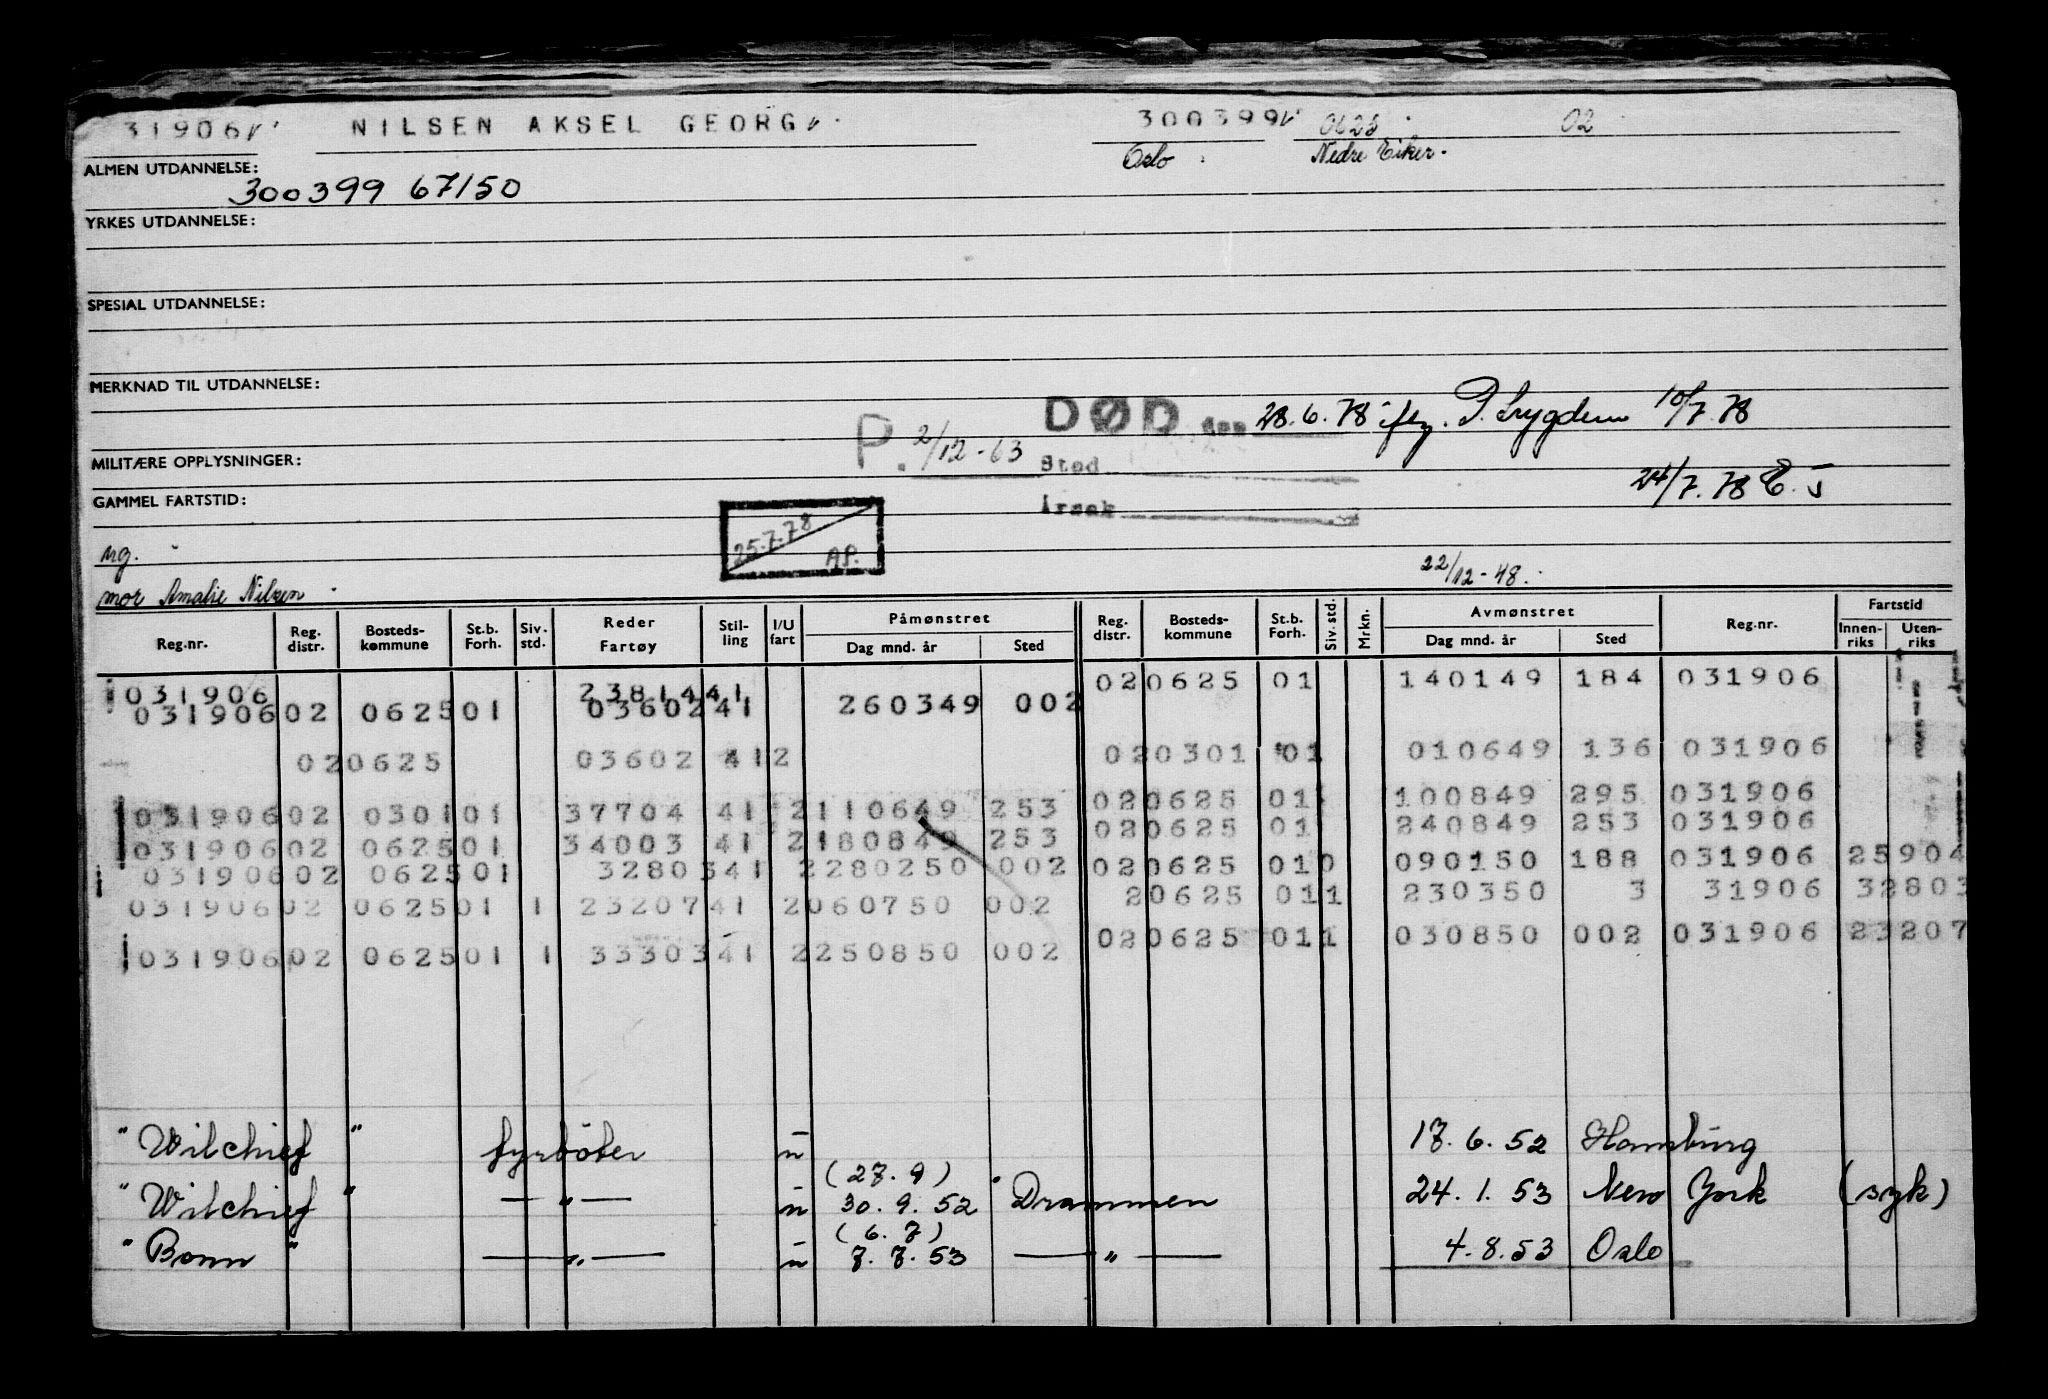 31906 NILSEN AKSEL GEORG 300399 0625 02
Oslo Nedre Eiker.
ALMEN UTDANNELSE:
300399 67150
YRKES UTDANNELSE:
SPESIAL UTDANNELSE:
MERKNAD TIL UTDANNELSE:
DØD den 28.6.78 iflg. P. Trygden 10/7.78
P. 2/12-63
MILITÆRE OPPLYSNINGER:
Sted
24/7.78 E.J
GAMMEL FARTSTID:
Årsak
25.7.78
AP.
ug.
22/12-48.
mor Amalie Nilsen
Reg.nr. Reg. distr. Bosteds-kommune St.b. Forh. Siv. std. Reder Fartøy Stil-ling I/U fart Påmønstret Dag mnd. år Sted Reg. distr. Bosteds-kommune St.b. Forh. Siv. std. Mrkn. Avmønstret Dag mnd. år Sted Reg.nr. Fartstid Innen-riks Uten-riks
031906 2381441 020625 01 140149 184 031906
031906 02 062501 0360241 260349 002
020625 03602 412 020301 01 010649 136 031906
031906 02 030101 37704 41 2110649 253 020625 01 100849 295 031906
031906 02 062501 34003 41 2180849 253 020625 01 240849 253 031906
031906 02 062501 3280341 2280250 002 020625 010 090150 188 031906 25904
031906 02 062501 1 2320741 2060750 002 20625 011 230350 3 31906 32803
031906 02 062501 1 3330341 2250850 002 020625 011 030850 002 031906 23207
"Wilchief" fyrböter u 17.6.52 Hamburg
(27.9)
"Wilchief" — " — u 30.9.52 Drammen 24.1.53 New York (syk)
(6.7)
"Bonn" — " — u 7.7.53 — " — 4.8.53 Oslo